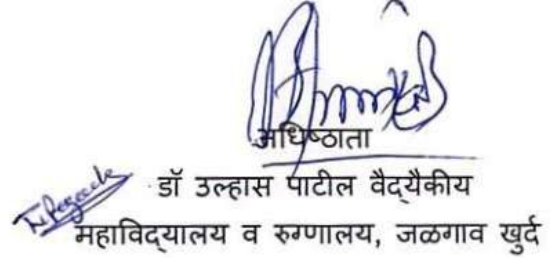 अधिष्ठाता
डॉ उल्हास पाटील वैद्यैकीय
महाविद्यालय व रुग्णालय, जळगाव खुर्द